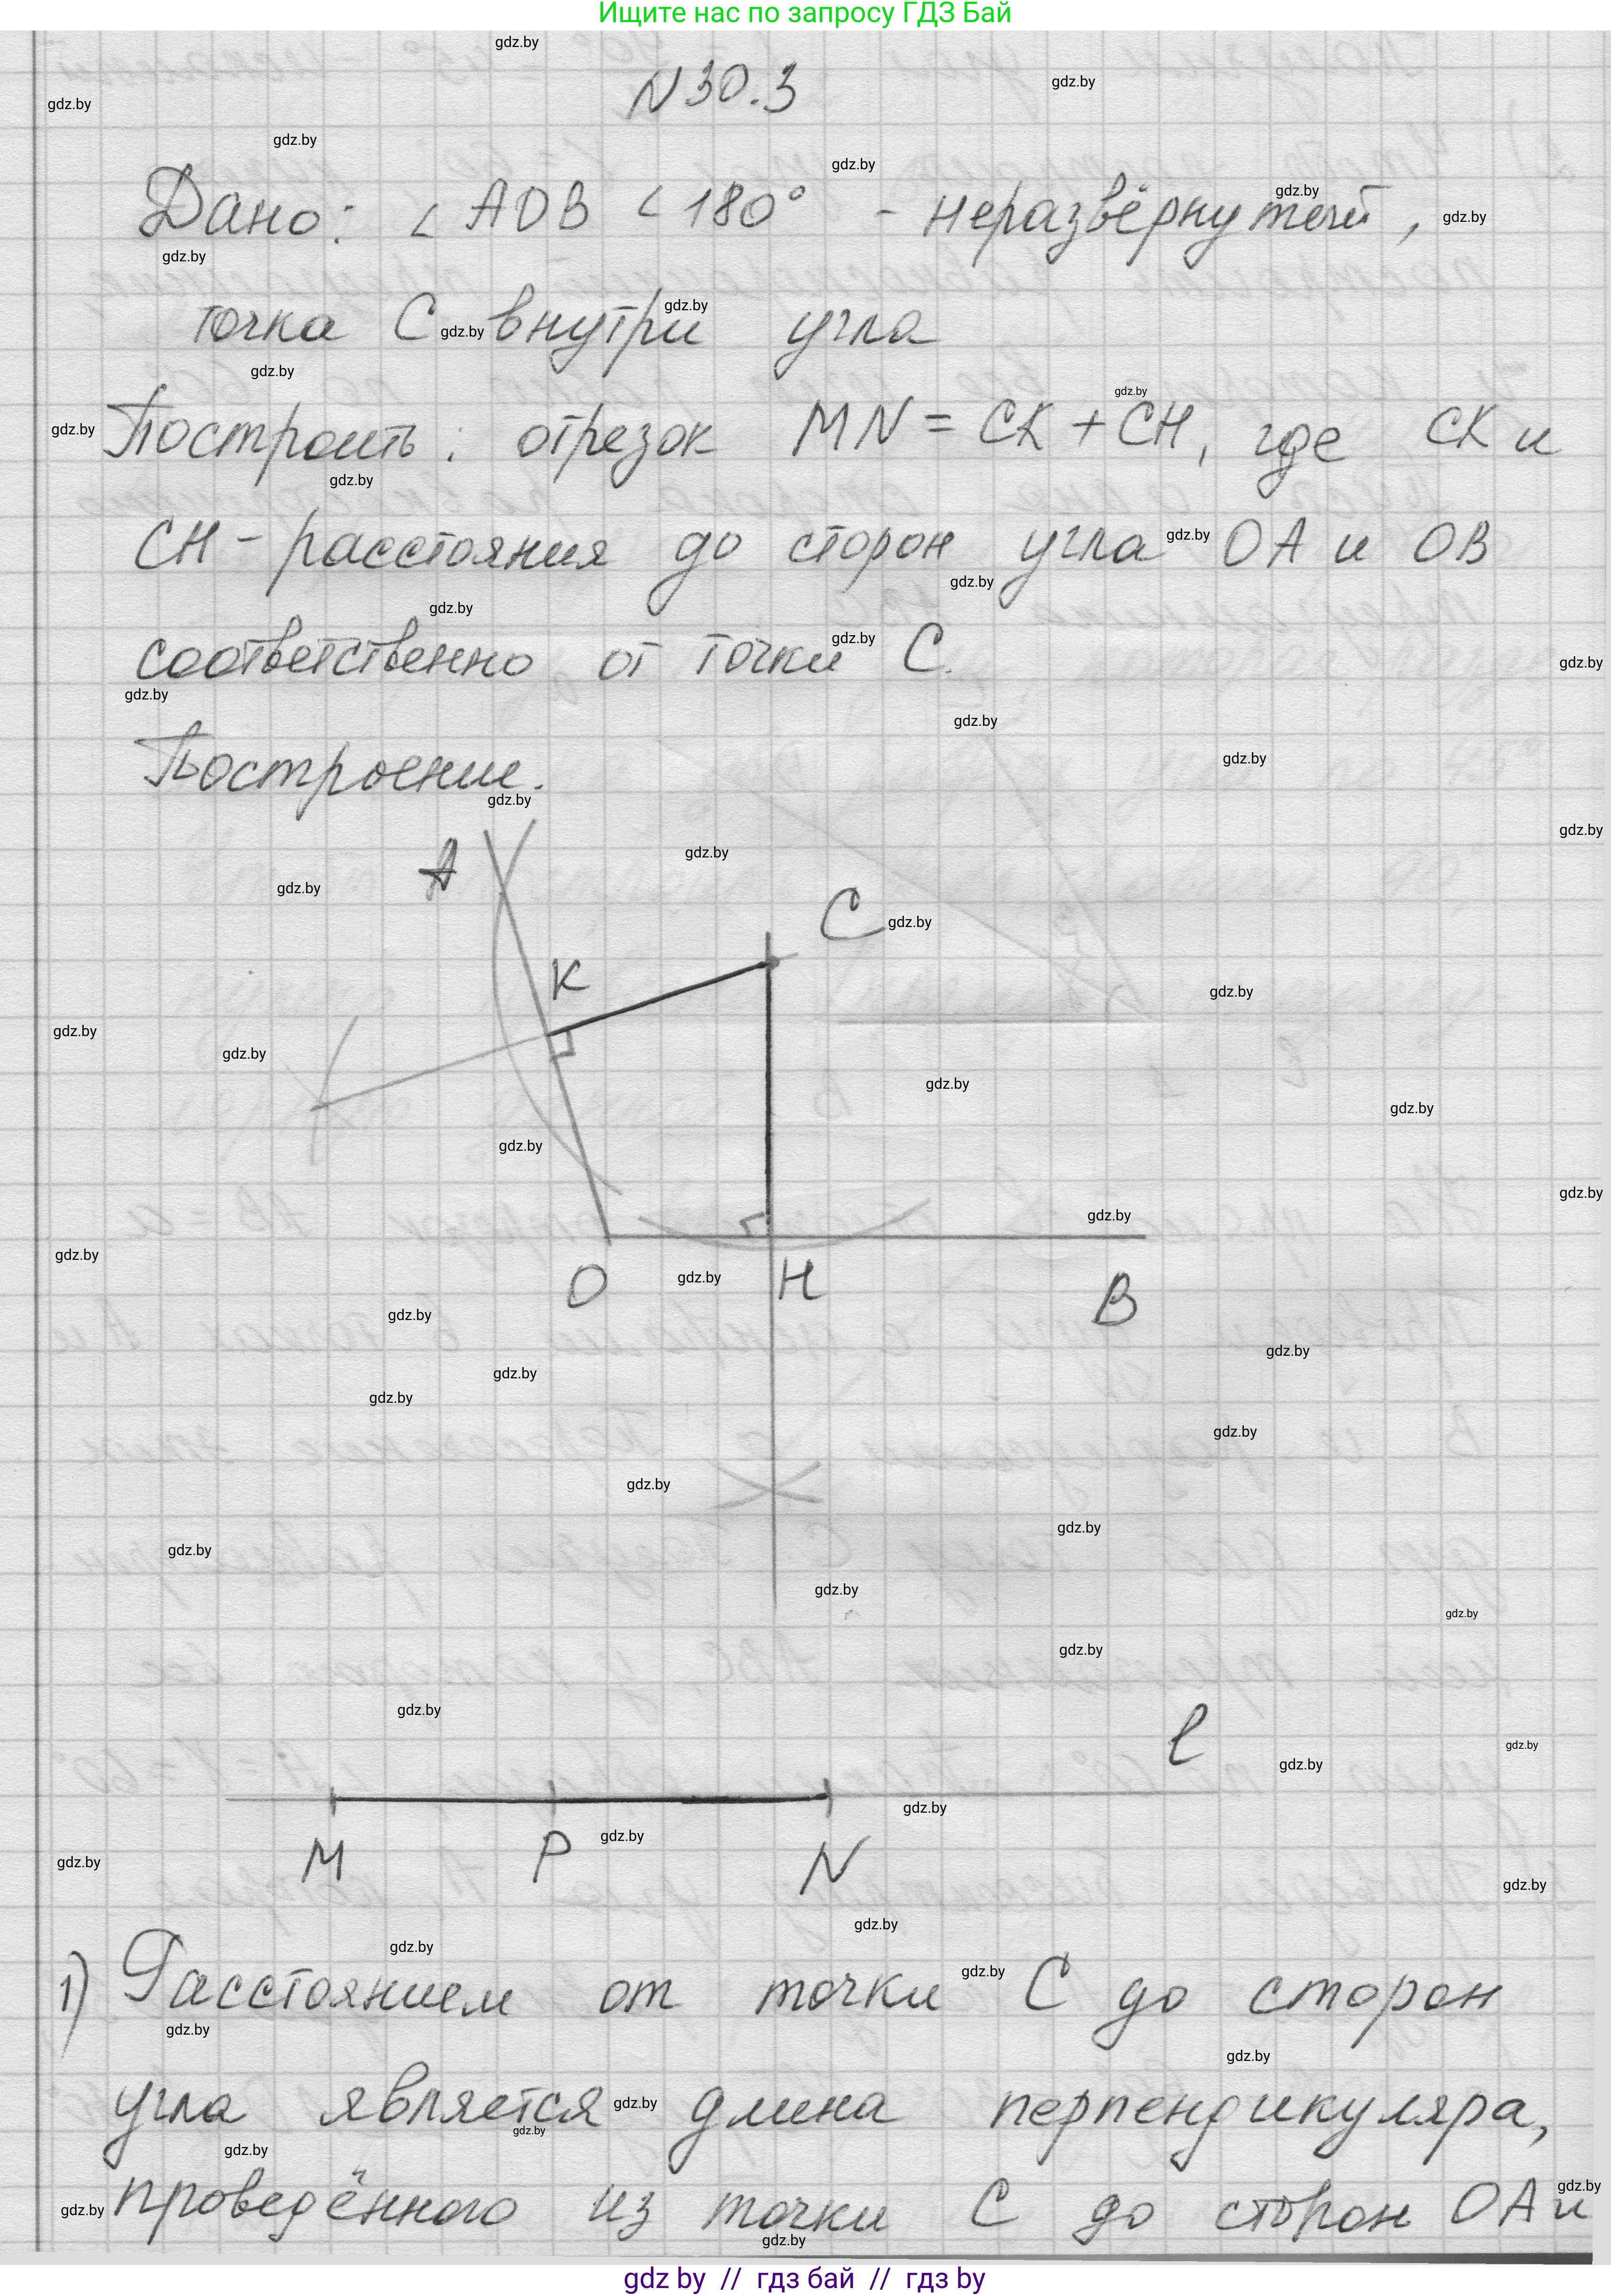 Ищите нас по запросу ГДЗ Бай
N 30.3
Дано: ∠ AOB < 180° - неразвёрнутый,
точка C внутри угла
Построить: отрезок MN = CK + CH, где CK и
CH - расстояния до сторон угла OA и OB
соответственно от точки C.
Построение.
A
C
K
O
H
B
l
M P N
1) Расстоянием от точки C до сторон
угла является длина перпендикуляра,
проведённого из точки C до сторон OA и
gdz by // гдз бай // гдз by